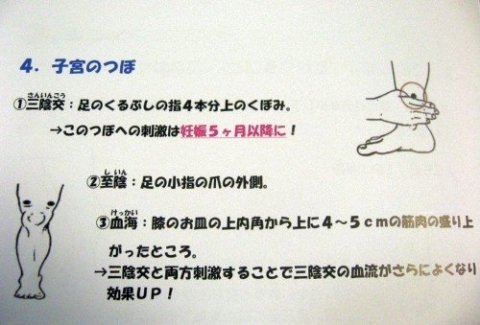 4．子宮のつぼ
さんいんこう
①三陰交：足のくるぶしの指４本分上のくぼみ。
→このつぼへの刺激は妊娠５ヶ月以降に！
しいん
②至陰：足の小指の爪の外側。
けっかい
③血海：膝のお皿の上内角から上に４～５ｃｍの筋肉の盛り上
がったところ。
→三陰交と両方刺激することで三陰交の血流がさらによくなり
効果ＵＰ！